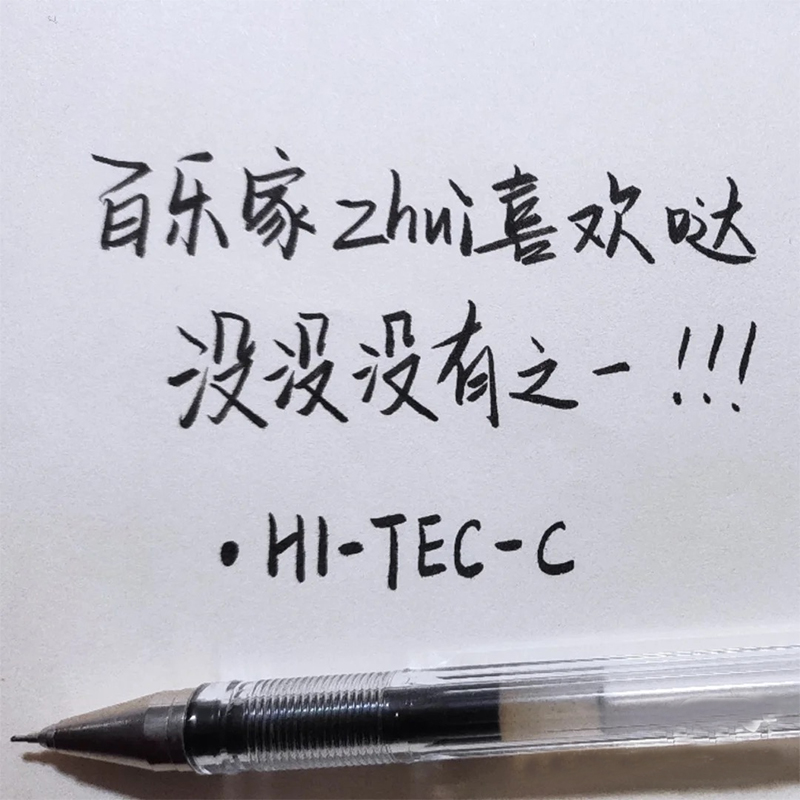 百乐家zhui喜欢哒
没没没有之一!!!
·HI-TEC-C